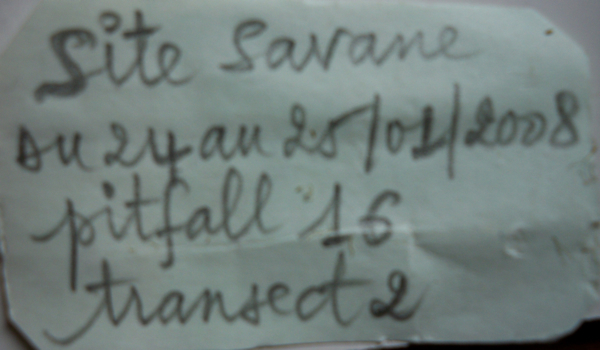 Site Savane
du 24 au 25/01/2008
pitfall 16
transect 2